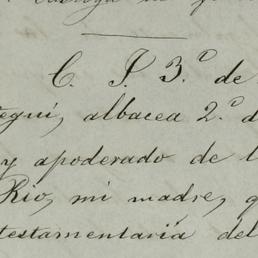 C. J. 3.º de
tegui, albacea 2.º d
y apoderado de l
Rio, mi madre, q
testamentaria del